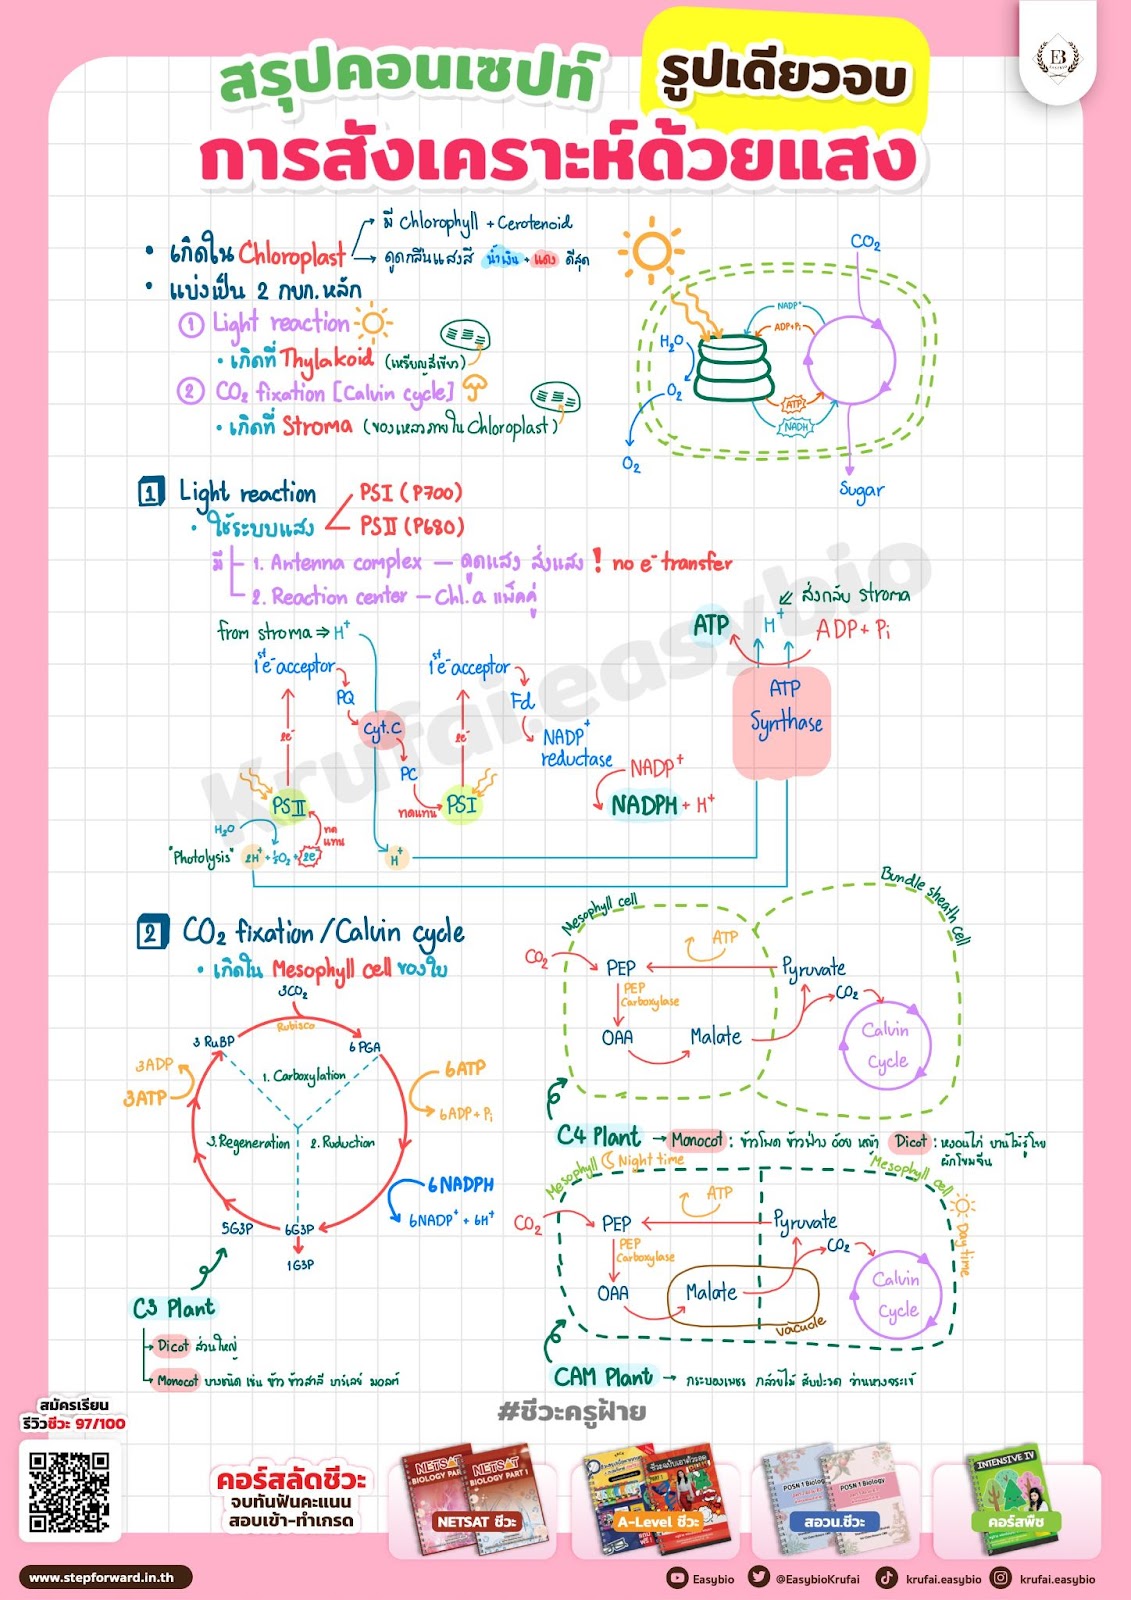 สรุปคอนเซปท์ รูปเดียวจบ
การสังเคราะห์ด้วยแสง
EB
• เกิดใน Chloroplast
มี Chlorophyll + Cerotenoid
ดูดกลืนแสงสี น้ำเงิน + แดง ดีสุด
• แบ่งเป็น 2 กบก.หลัก
① Light reaction
• เกิดที่ Thylakoid (เหรียญสีเขียว)
② CO2 fixation [Calvin cycle]
• เกิดที่ Stroma (ของเหลวภายใน Chloroplast)
CO2
NADP+
ADP+Pi
H2O
O2
ATP
NADH
O2
Sugar
1 Light reaction
• ใช้ระบบแสง
PSI (P700)
PSII (P680)
มี
1. Antenna complex — ดูดแสง ส่งแสง ! no e- transfer
2. Reaction center — Chl.a แพ็คคู่
from stroma ⇒ H+
1st e- acceptor
PQ
Cyt.C
PC
2e-
PSII
ทดแทน
H2O
"Photolysis"
2H+ + ½O2 + 2e-
ทดแทน
H+
1st e- acceptor
Fd
NADP+
reductase
2e-
PSI
NADP+
NADPH + H+
ส่งกลับ stroma
ATP
H+
ADP + Pi
ATP
Synthase
2 CO2 fixation /Calvin cycle
• เกิดใน Mesophyll cell ของใบ
3CO2
Rubisco
3 RuBP
6 PGA
1. Carboxylation
3ADP
3ATP
6ATP
6ADP + Pi
3. Regeneration
2. Ruduction
6NADPH
6NADP+ + 6H+
5G3P
6G3P
1G3P
C3 Plant
Dicot ส่วนใหญ่
Monocot บางชนิด เช่น ข้าว ข้าวสาลี บาร์เลย์ มอลท์
Mesophyll cell
Bundle sheath cell
ATP
CO2
PEP
Pyruvate
PEP
Carboxylase
CO2
OAA
Malate
Calvin
Cycle
C4 Plant → Monocot : ข้าวโพด ข้าวฟ่าง อ้อย หญ้า Dicot : หงอนไก่ บานไม่รู้โรย
ผักโขมจีน
Mesophyll
Night time
Mesophyll cell
Day time
ATP
CO2
PEP
Pyruvate
PEP
Carboxylase
CO2
OAA
Malate
Calvin
Cycle
vacuole
CAM Plant → กระบองเพชร กล้วยไม้ สับปะรด ว่านหางจระเข้
Krufai.easybio
#ชีวะครูฝ้าย
สมัครเรียน
รีวิวชีวะ 97/100
คอร์สลัดชีวะ
จบทันฟันคะแนน
สอบเข้า-ทำเกรด
NETSAT
BIOLOGY PART 1
NETSAT ชีวะ
A-Level ชีวะ
POSN 1 Biology
สอวน.ชีวะ
INTENSIVE IV
คอร์สพืช
www.stepforward.in.th
Easybio
@EasybioKrufai
krufai.easybio
krufai.easybio